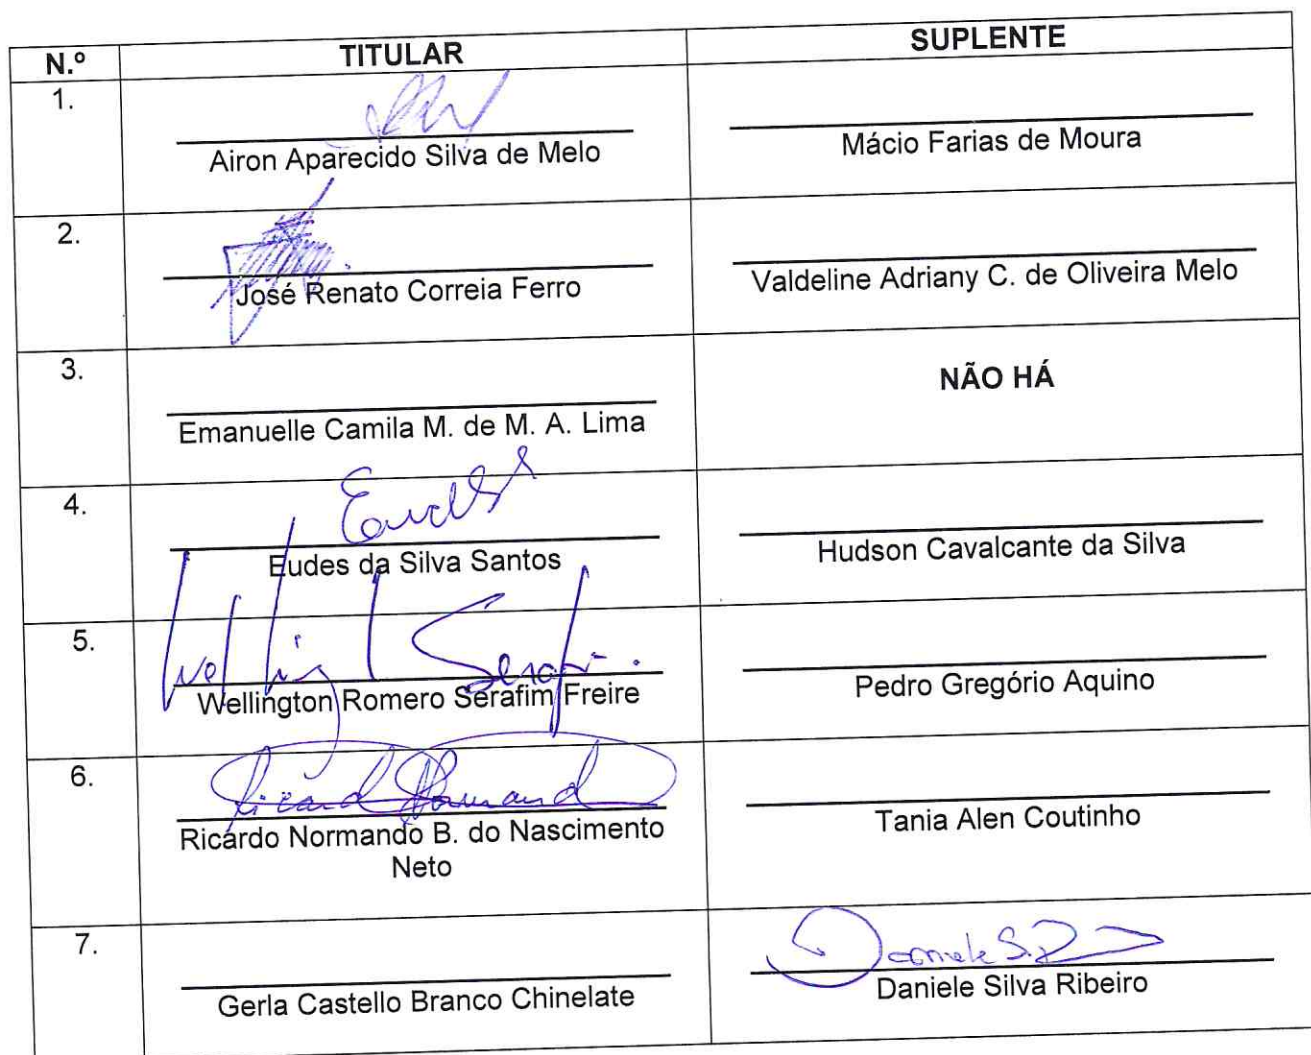 N.º TITULAR SUPLENTE
1.
Airon Aparecido Silva de Melo
Mácio Farias de Moura
2.
José Renato Correia Ferro
Valdeline Adriany C. de Oliveira Melo
3.
Emanuelle Camila M. de M. A. Lima
NÃO HÁ
4.
Eudes
Eudes da Silva Santos
Hudson Cavalcante da Silva
5.
Wellington Serafim
Wellington Romero Serafim Freire
Pedro Gregório Aquino
6.
Ricardo Normand
Ricardo Normando B. do Nascimento
Neto
Tania Alen Coutinho
7.
Gerla Castello Branco Chinelate
Daniele S. R
Daniele Silva Ribeiro